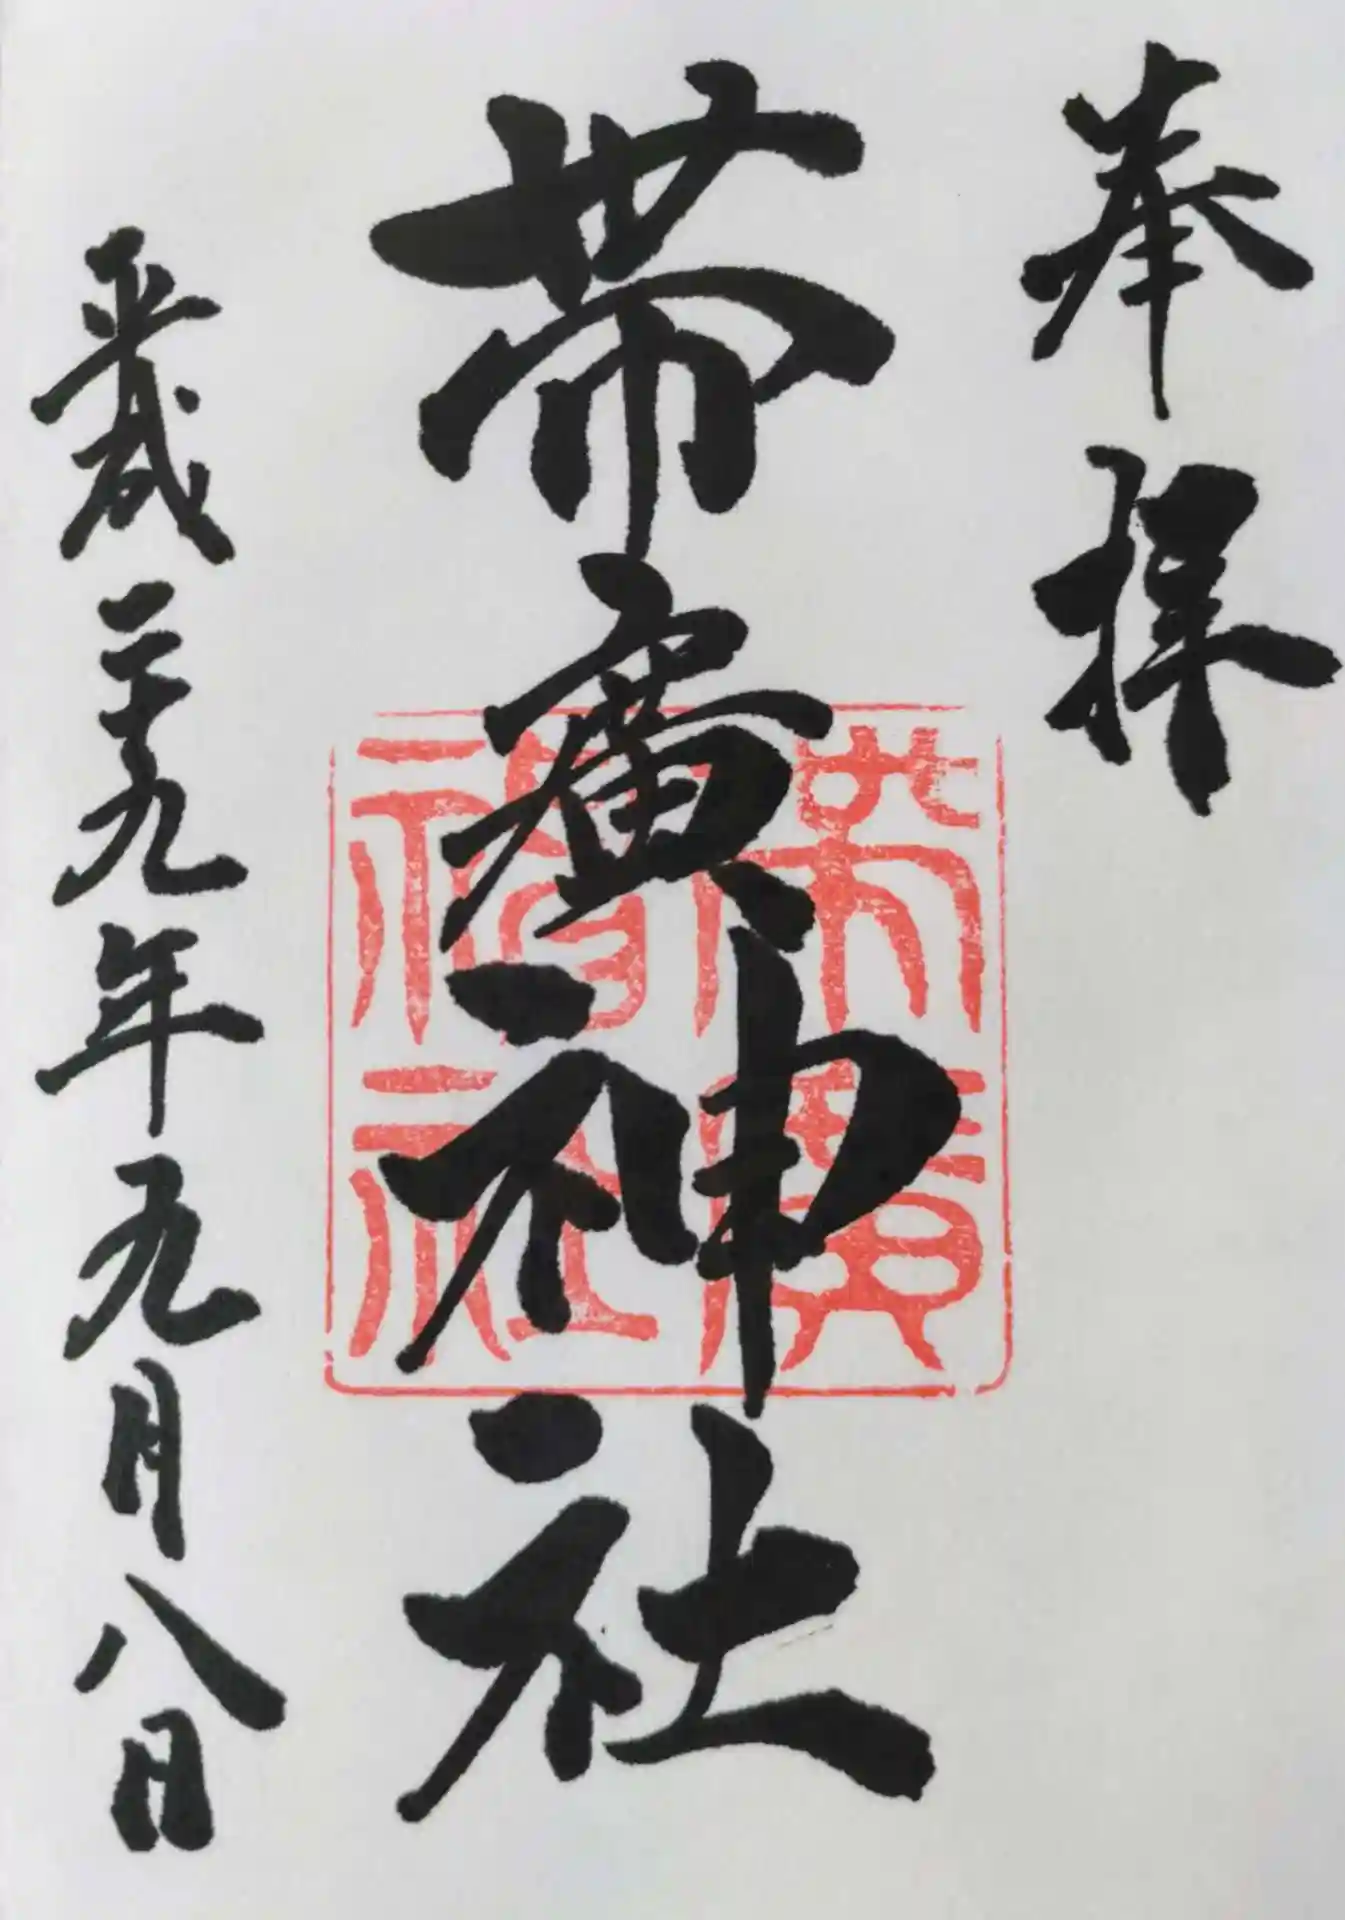 奉拝
帯廣神社
帯廣
神社
平成二十九年九月八日